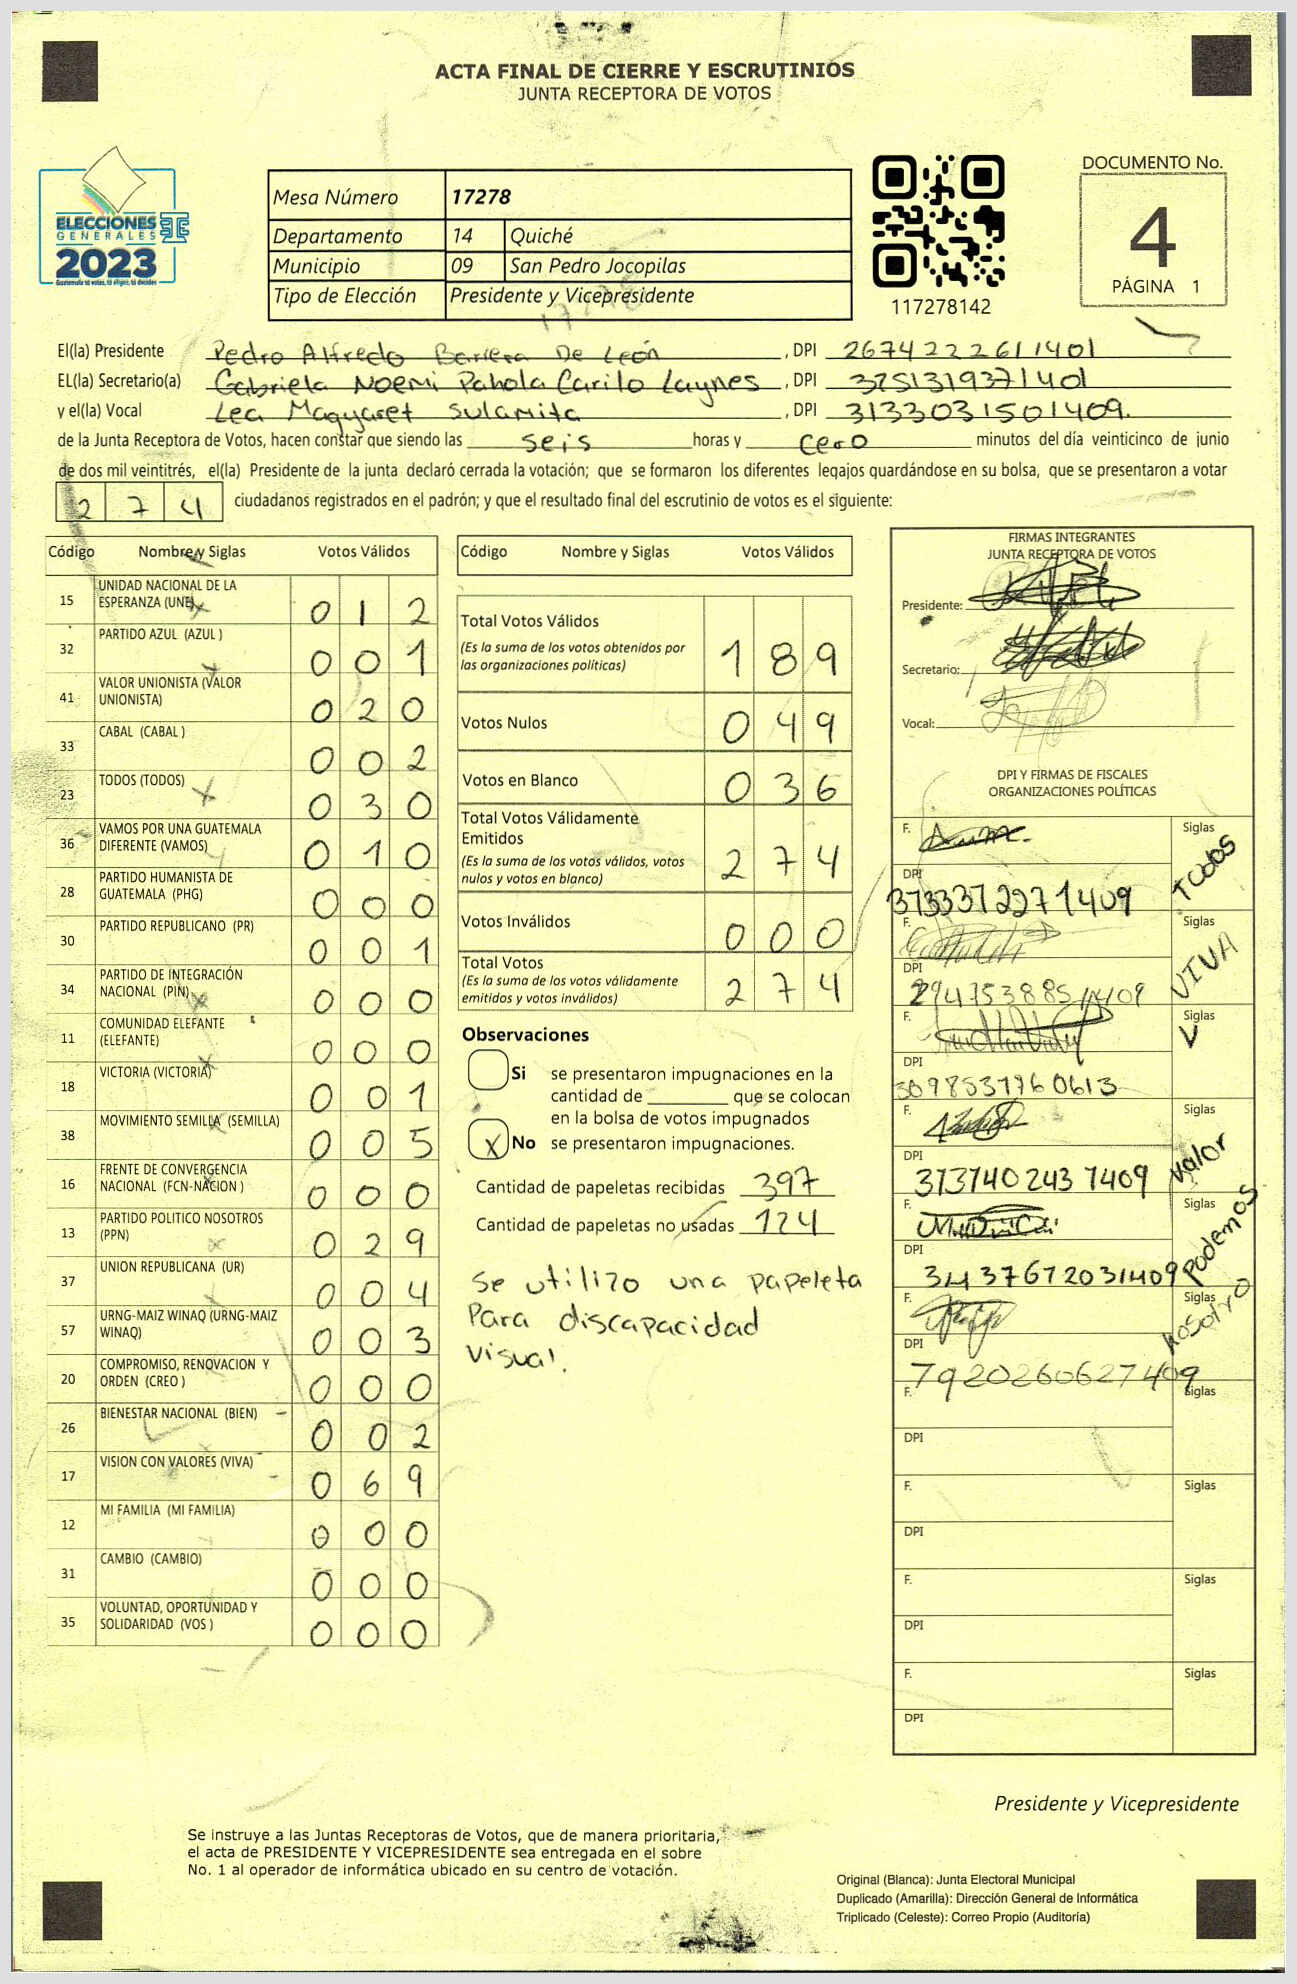 ACTA FINAL DE CIERRE Y ESCRUTINIOS
JUNTA RECEPTORA DE VOTOS
ELECCIONES
GENERALES
2023
Guatemala tú votas, tú eliges, tú decides
Mesa Número 17278
Departamento 14 Quiché
Municipio 09 San Pedro Jocopilas
Tipo de Elección Presidente y Vicepresidente
117278142
DOCUMENTO No.
4
PÁGINA 1
El(la) Presidente Pedro Alfredo Barrera De León , DPI 2674222611401
EL(la) Secretario(a) Gabriela Noemi Pahola Carilo Laynes , DPI 3251319371401
y el(la) Vocal Lea Magyaret Sulamita , DPI 3133031501409.
de la Junta Receptora de Votos, hacen constar que siendo las seis horas y cero minutos del día veinticinco de junio
de dos mil veintitrés, el(la) Presidente de la junta declaró cerrada la votación; que se formaron los diferentes legajos guardándose en su bolsa, que se presentaron a votar
274 ciudadanos registrados en el padrón; y que el resultado final del escrutinio de votos es el siguiente:
Código Nombre y Siglas Votos Válidos
15 UNIDAD NACIONAL DE LA ESPERANZA (UNE) 012
32 PARTIDO AZUL (AZUL ) 001
41 VALOR UNIONISTA (VALOR UNIONISTA) 020
33 CABAL (CABAL ) 002
23 TODOS (TODOS) 030
36 VAMOS POR UNA GUATEMALA DIFERENTE (VAMOS) 010
28 PARTIDO HUMANISTA DE GUATEMALA (PHG) 000
30 PARTIDO REPUBLICANO (PR) 001
34 PARTIDO DE INTEGRACIÓN NACIONAL (PIN) 000
11 COMUNIDAD ELEFANTE (ELEFANTE) 000
18 VICTORIA (VICTORIA) 001
38 MOVIMIENTO SEMILLA (SEMILLA) 005
16 FRENTE DE CONVERGENCIA NACIONAL (FCN-NACION ) 000
13 PARTIDO POLITICO NOSOTROS (PPN) 029
37 UNION REPUBLICANA (UR) 004
57 URNG-MAIZ WINAQ (URNG-MAIZ WINAQ) 003
20 COMPROMISO, RENOVACION Y ORDEN (CREO ) 000
26 BIENESTAR NACIONAL (BIEN) 002
17 VISION CON VALORES (VIVA) 069
12 MI FAMILIA (MI FAMILIA) 000
31 CAMBIO (CAMBIO) 000
35 VOLUNTAD, OPORTUNIDAD Y SOLIDARIDAD (VOS ) 000
Código Nombre y Siglas Votos Válidos
Total Votos Válidos 189
(Es la suma de los votos obtenidos por las organizaciones políticas)
Votos Nulos 049
Votos en Blanco 036
Total Votos Válidamente Emitidos 274
(Es la suma de los votos válidos, votos nulos y votos en blanco)
Votos Inválidos 000
Total Votos 274
(Es la suma de los votos válidamente emitidos y votos inválidos)
Observaciones
Si se presentaron impugnaciones en la
cantidad de ________ que se colocan
en la bolsa de votos impugnados
X No se presentaron impugnaciones.
Cantidad de papeletas recibidas 397
Cantidad de papeletas no usadas 124
Se utilizo una papeleta
Para discapacidad
visual.
FIRMAS INTEGRANTES
JUNTA RECEPTORA DE VOTOS
Presidente:
Secretario:
Vocal:
DPI Y FIRMAS DE FISCALES
ORGANIZACIONES POLÍTICAS
F. Siglas TODOS
DPI 3733372271409
F. Siglas VIVA
DPI 2947538851409
F. Siglas V
DPI 3098537760613
F. Siglas Valor
DPI 3737402437409
F. Siglas Podemos
DPI 3437672031409
F. Siglas nosotro
DPI 7920260627409
F. Siglas
DPI
F. Siglas
DPI
F. Siglas
DPI
F. Siglas
DPI
Presidente y Vicepresidente
Se instruye a las Juntas Receptoras de Votos, que de manera prioritaria,
el acta de PRESIDENTE Y VICEPRESIDENTE sea entregada en el sobre
No. 1 al operador de informática ubicado en su centro de votación.
Original (Blanca): Junta Electoral Municipal
Duplicado (Amarilla): Dirección General de Informática
Triplicado (Celeste): Correo Propio (Auditoría)